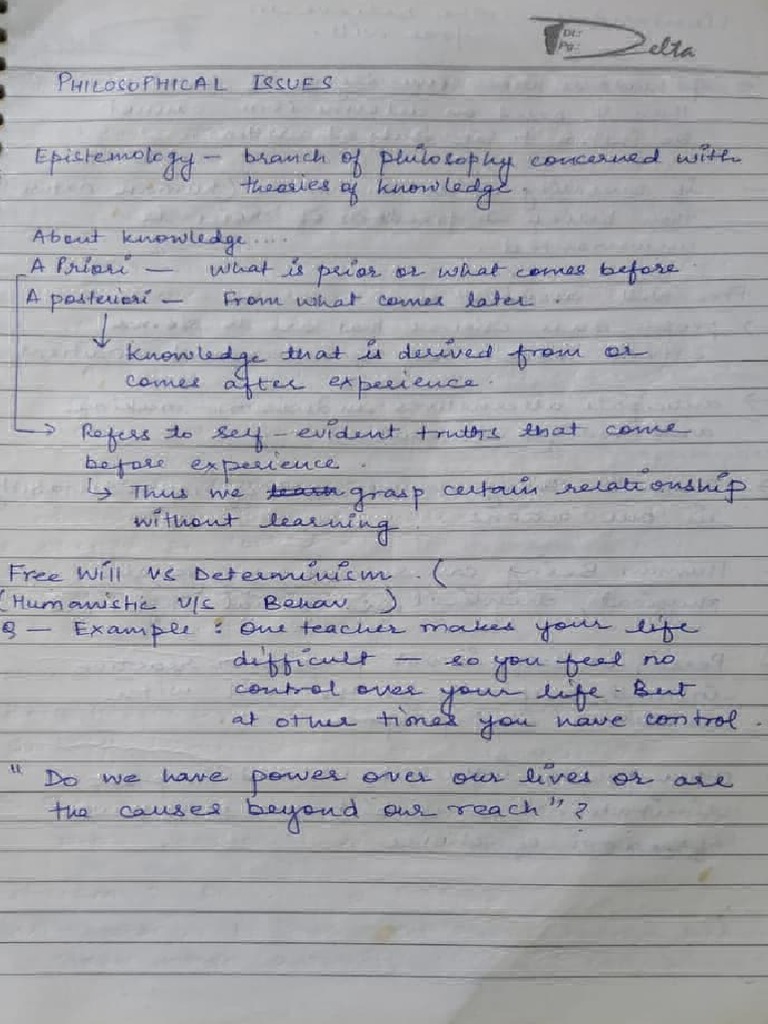 Dt.:
Pg.:
Delta
PHILOSOPHICAL ISSUES
Epistemology — branch of philosophy concerned with
theories of knowledge.
About knowledge....
A Priori — what is prior or what comes before.
A posteriori — From what comes later.
↓
knowledge that is derived from or
comes after experience.
→ Refers to self-evident truths that come
before experience.
↳ Thus we learn grasp certain relationship
without learning.
Free Will vs Determinism. (
(Humanistic v/s Behav )
Q — Example : One teacher makes your life
difficult — so you feel no
control over your life. But
at other times you have control.
" Do we have power over our lives or are
the causes beyond our reach" ?